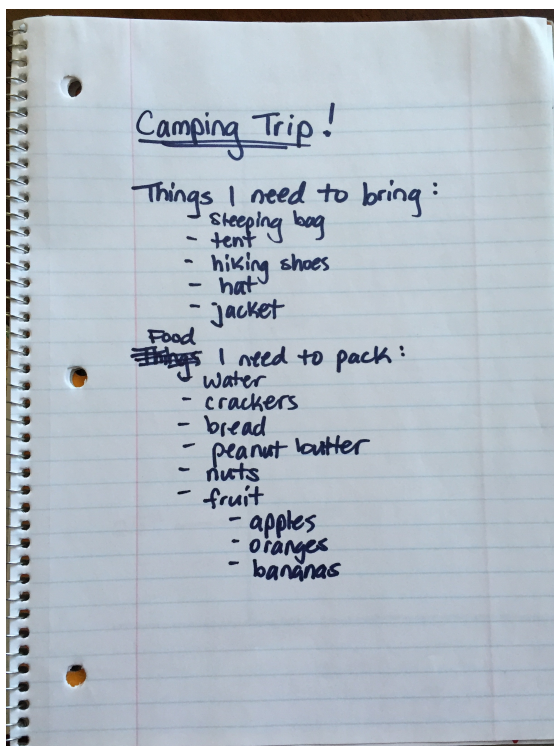 Camping Trip!
Things I need to bring:
sleeping bag
- tent
- hiking shoes
- hat
- jacket
Food
Things I need to pack:
- water
- crackers
- bread
- peanut butter
- nuts
- fruit
- apples
- oranges
- bananas